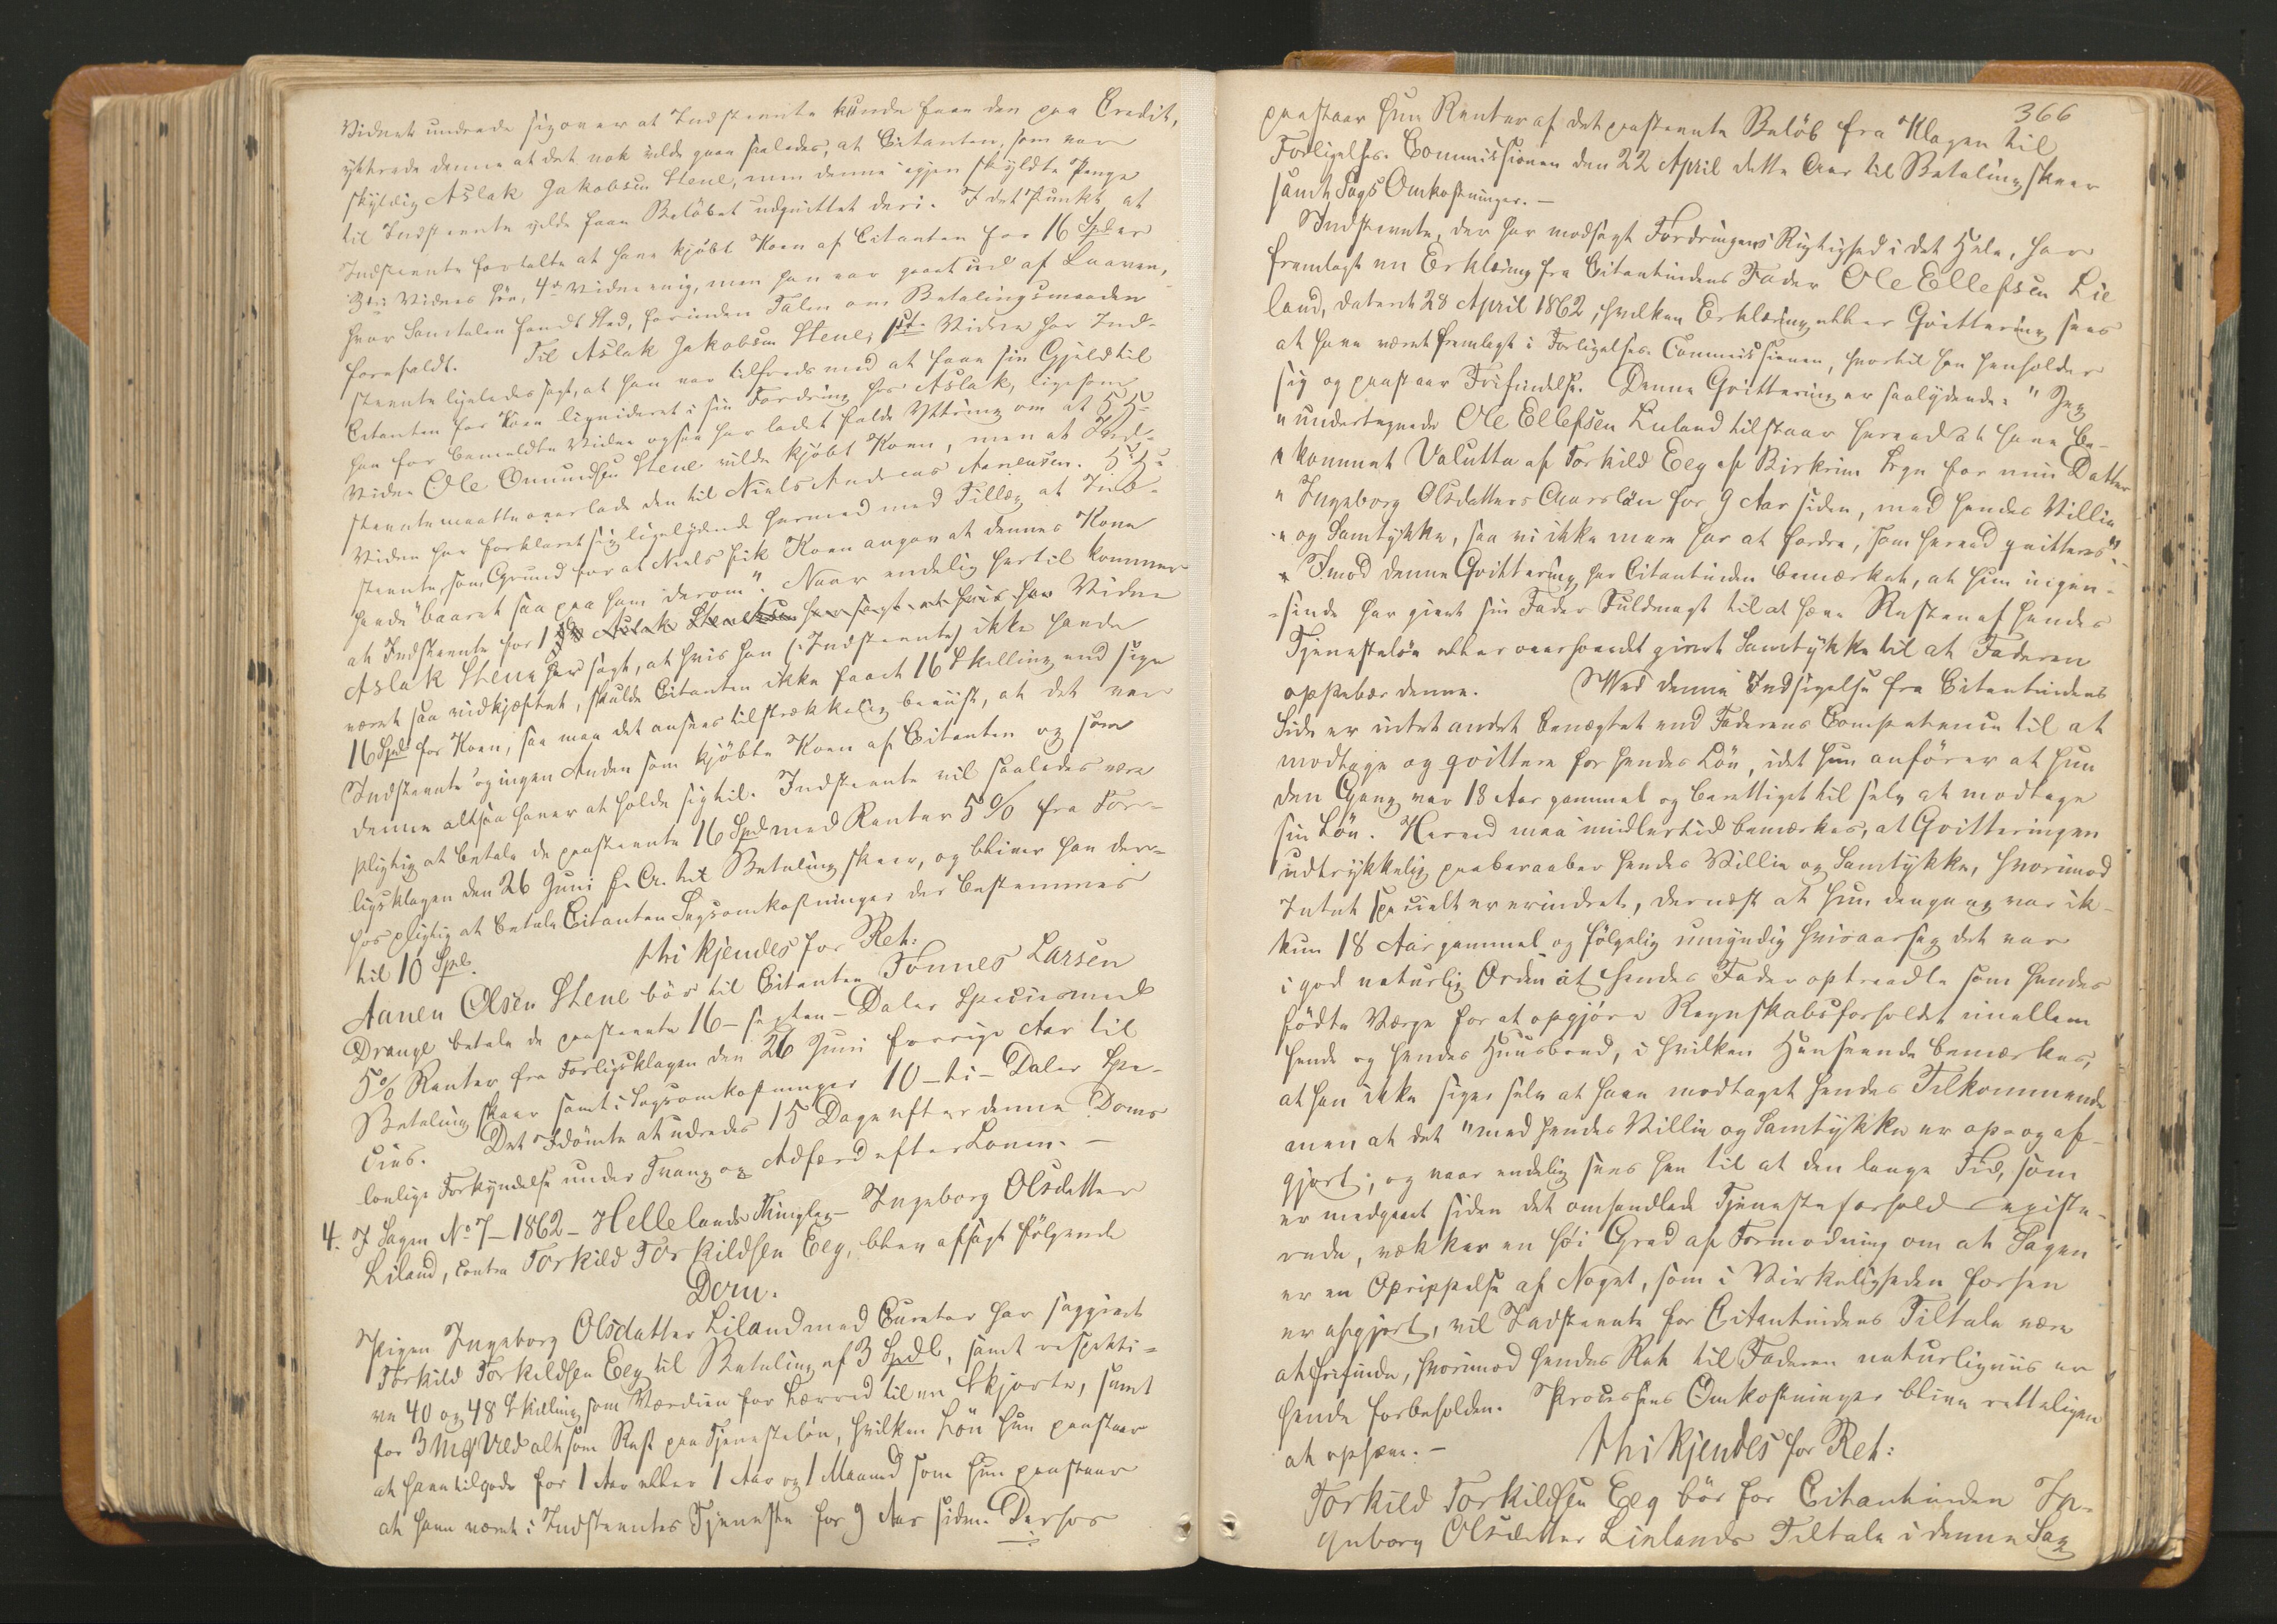 Vidnet undrede sig over at Indstevnte kunde faae den paa Credit,
yttrede denne at det nok vilde gaae saaledes, at Citanten, som var
skyldig Aslak Jakobsen Stene, men denne igjen skyldte Penge
til Indstevnte vilde faae Beløbet udqvittet deri. I det Punkt, at
Indstevnte fortalte at have kjøbt Koen af Citanten for 16 Spd er
3die Vidnes Søn, 4de Vidne enig, men han var gaaet ud af Laaven,
hvor Samtalen fandt Sted, forinden Talen om Betalingsmaaden
forefaldt. Til Aslak Jakobsen Stene, 1ste Vidne har Ind-
stevnte ligeledes sagt, at han var tilfreds med at faae sin Gjæld til
Citanten for Koen liqvideret i sin Fordring hos Aslak, ligesom
han for bemeldte Vidne ogsaa har ladet falde Yttring om at 55-
Vidne Ole Omundsen Stene vilde kjøbt Koen, men at Ind-
stevnte maatte overlade den til Niels Andreas Aanensen. 5te
Vidne har forklaret sig ligelydende hermed med Tillæg at Ind-
stevnte, som Grund for at Niels fik Koen angav at dennes Kone
havde "baaret saa paa ham derom". Naar endelig hertil kommer
at Indstevnte for 1ste Vidne
Aslak Stene har sagt, at hvis han (: Indstevnte) ikke havde
været saa vidkjæftet, skulde Citanten ikke faaet 16 Skilling end sige
16 Spd for Koen, saa maa det ansees tilstrækkelig beviist, at det var
Indstevnte og ingen Anden som kjøbte Koen af Citanten og som
denne altsaa haver at holde sig til. Indstevnte vil saaledes være
pligtig at betale de paastevnte 16 Spd med Renter 5 % fra For-
ligsklagen den 26 Juni f. A. til Betaling skeer, og bliver han der-
hos pligtig at betale Citanten Sagsomkostninger der bestemmes
til 10 Spd. Thi kjendes for Ret:
Aanen Olsen Stene bør til Citanten Tønnes Larsen
Drange betale de paastevnte 16 - sexten - Daler Species med
5 % Renter fra Forligsklagen den 26 Juni forrige Aar til
Betaling skeer samt i Sagsomkostninger 10 - ti - Daler Spe-
cies. Det Idømte at udredes 15 Dage efter denne Doms
lovlige Forkyndelse under Tvang og Adfærd efter Loven. -
4. I Sagen No 7 - 1862 - Hellelands Thinglag - Ingeborg Olsdatter
Liland, contra Torkild Torkildsen Eeg, blev afsagt følgende
Dom.
Pigen Ingeborg Olsdatter Liland med Curator har saggivet
Torkild Torkildsen Eeg til Betaling af 3 Spdl, samt respekti-
ve 40 og 48 Skilling som Værdien for Lærred til en Skjorte, samt
for 3 Mrk Uld alt som Rest paa Tjenesteløn, hvilken Løn hun paastaar
at have tilgode for 1 Aar eller 1 Aar og 1 Maaned som hun paastaar
at have været i Indstevntes Tjeneste for 9 Aar siden. Derhos
366
paastaar hun Renter af det paastevnte Beløb fra Klagen til
Forligelses-Commissionen den 22 April dette Aar til Betaling skeer
samt Sags Omkostninger. -
Indstevnte, der har modsagt Fordringens Rigtighed i det Hele, har
fremlagt en Erklæring fra Citantindens Fader Ole Ellefsen Lie
land, dateret 28 April 1862, hvilken Erklæring eller Qvittering sees
at have været fremlagt i Forligelses-Commissionen, hvortil han henholder
sig og paastaar Frifindelse. Denne Qvittering er saalydende: "Jeg
"undertegnede Ole Ellefsen Lieland tilstaar herved at have be-
"kommet Valutta af Torkild Eeg af Birkrim Sogn for min Datter
"Ingeborg Olsdatters Aarsløn for 9 Aar siden, med hendes Villie
"og Samtykke, saa vi ikke mere har at fordre, som herved qvitteres".
Imod denne Qvittering har Citantinden bemærket, at hun ingen-
sinde har givet sin Fader Fuldmagt til at hæve Resten af hendes
Tjenesteløn eller overhovedet givet Samtykke til at Faderen
oppebær denne. Ved denne Indsigelse fra Citantindens
Side er intet andet benægtet end Faderens Competence til at
modtage og qvittere for hendes Løn, idet hun anfører at hun
den Gang var 18 Aar gammel og berettiget til selv at modtage
sin Løn. Herved maa imidlertid bemærkes, at Qvitteringen
udtrykkelig paaberaaber hendes Villie og Samtykke, hvorimod
Intet specielt er erindret, dernæst at hun dengang var ik-
kun 18 Aar gammel og følgelig umyndig hvisaarsag det var
i god naturlig Orden at hendes Fader optraadte som hendes
fødte Værge for at opgjøre Regnskabsforholdet imellem
hende og hendes Huusbond, i hvilken Henseende bemærkes,
at han ikke siger selv at have modtaget hendes Tilkommende
men at det "med hendes Villie og Samtykke er op- og af-
gjort; og naar endelig sees hen til at den lange Tid, som
er medgaaet siden det omhandlede Tjenesteforhold existe-
rede, vækker en høi Grad af Formodning om at Sagen
er en Oprippelse af Noget, som i Virkeligheden forhen
er afgjort, vil Indstevnte for Citantindens Tiltale være
at frifinde, hvorimod hendes Ret til Faderen naturligviis er
hende forbeholden. Processens Omkostninger blive retteligen
at ophæve. - Thi kjendes for Ret:
Torkild Torkildsen Eeg bør for Citantinden In-
geborg Olsdatter Lielands Tiltale i denne Sag